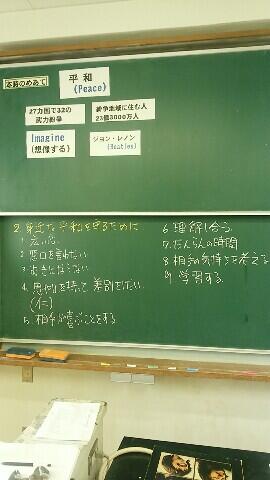 本時のめあて
平和
(Peace)
27カ国で32の
武力紛争
紛争地域に住む人
23億3000万人
Imagine
(想像する)
ジョン・レノン
(Beatles)
2. 身近な平和を守るために
1.
2. 悪口を言わない
3.
4. 思いやりを持って 差別をしない
(仁)
5. 相手が喜ぶことをする
6. 理解し合う。
7. だんらんの時間
8. 相手の気持ちを考える
9. 学習する。